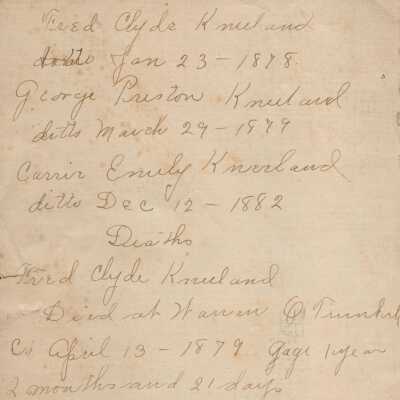 Fred Clyde Kneeland
ditto Jan 23 - 1878
George Preston Kneeland
ditto March 29 - 1879
Carrie Emily Kneeland
ditto Dec 12 - 1882
Deaths
Fred Clyde Kneeland
Died at Warren O Trumbull
Co April 13 - 1879 Age 1 year
2 months and 21 days